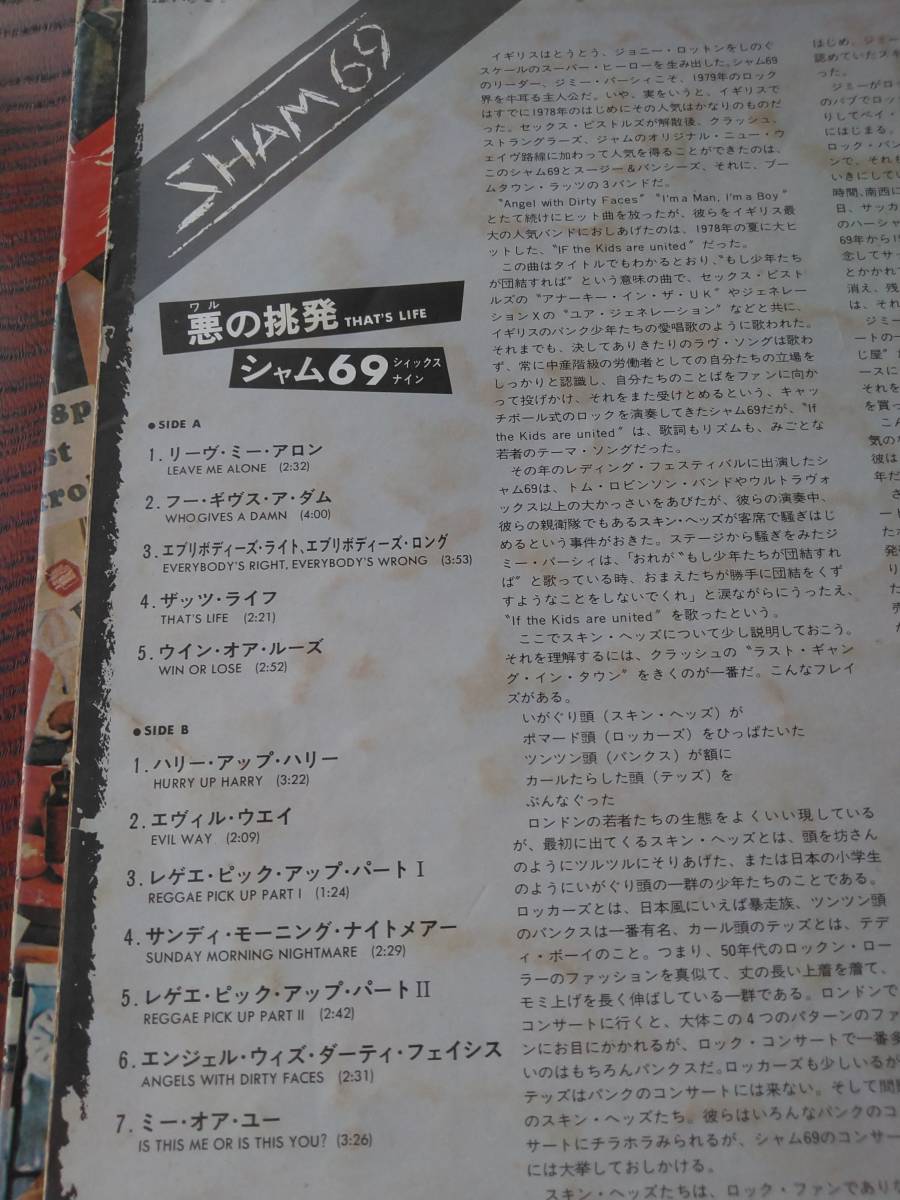 SHAM 69
ワル
悪の挑発 THAT'S LIFE
シャム69 シィックスナイン
●SIDE A
1. リーヴ・ミー・アロン
LEAVE ME ALONE (2:32)
2. フー・ギヴス・ア・ダム
WHO GIVES A DAMN (4:00)
3. エブリボディーズ・ライト、エブリボディーズ・ロング
EVERYBODY'S RIGHT, EVERYBODY'S WRONG (3:53)
4. ザッツ・ライフ
THAT'S LIFE (2:21)
5. ウイン・オア・ルーズ
WIN OR LOSE (2:52)
●SIDE B
1. ハリー・アップ・ハリー
HURRY UP HARRY (3:22)
2. エヴィル・ウエイ
EVIL WAY (2:09)
3. レゲエ・ピック・アップ・パート I
REGGAE PICK UP PART I (1:24)
4. サンディ・モーニング・ナイトメアー
SUNDAY MORNING NIGHTMARE (2:29)
5. レゲエ・ピック・アップ・パート II
REGGAE PICK UP PART II (2:42)
6. エンジェル・ウィズ・ダーティ・フェイシス
ANGELS WITH DIRTY FACES (2:31)
7. ミー・オア・ユー
IS THIS ME OR IS THIS YOU? (3:26)
イギリスはとうとう、ジョニー・ロットンをしのぐ
スケールのスーパー・ヒーローを生み出した。シャム69
のリーダー、ジミー・パーシィこそ、1979年のロック
界を牛耳る主人公だ。いや、実をいうと、イギリスで
はすでに1978年のはじめにその人気はかなりのものだ
った。セックス・ピストルズが解散後、クラッシュ、
ストラングラーズ、ジャムのオリジナル・ニュー・ウ
ェイヴ路線に加わって人気を得ることができたのは、
このシャム69とスージー&バンシーズ、それに、ブー
ムタウン・ラッツの3バンドだ。
"Angel with Dirty Faces" "I'm a Man, I'm a Boy"
とたて続けにヒット曲を放ったが、彼らをイギリス最
大の人気バンドにおしあげたのは、1978年の夏に大ヒ
ットした、"IF the Kids are united" だった。
この曲はタイトルでもわかるとおり、"もし少年たち
が団結すれば" という意味の曲で、セックス・ピスト
ルズの "アナーキー・イン・ザ・UK" やジェネレー
ションXの "ユア・ジェネレーション" などと共に、
イギリスのパンク少年たちの愛唱歌のように歌われた。
それまでも、決してありきたりのラヴ・ソングは歌わ
ず、常に中産階級の労働者としての自分たちの立場を
しっかりと認識し、自分たちのことばをファンに向か
って投げかけ、それをまた受けとめるという、キャッ
チボール式のロックを演奏してきたシャム69だが、"If
the Kids are united" は、歌詞もリズムも、みごとな
若者のテーマ・ソングだった。
その年のレディング・フェスティバルに出演したシ
ャム69は、トム・ロビンソン・バンドやウルトラヴォ
ックス以上の大かっさいをあびたが、彼らの演奏中、
彼らの親衛隊でもあるスキン・ヘッズが客席で騒ぎはじ
めるという事件がおきた。ステージから騒ぎをみたジ
ミー・パーシィは、「おれが "もし少年たちが団結すれ
ば" と歌っている時、おまえたちが勝手に団結をくず
すようなことをしないでくれ」と涙ながらにうったえ、
"If the Kids are united" を歌ったという。
ここでスキン・ヘッズについて少し説明しておこう。
それを理解するには、クラッシュの "ラスト・ギャン
グ・イン・タウン" をきくのが一番だ。こんなフレイ
ズがある。
いがぐり頭（スキン・ヘッズ）が
ポマード頭（ロッカーズ）をひっぱたいた
ツンツン頭（パンクス）が額に
カールたらした頭（テッズ）を
ぶんなぐった
ロンドンの若者たちの生態をよくいい現している
が、最初に出てくるスキン・ヘッズとは、頭を坊さん
のようにツルツルにそりあげた、または日本の小学生
のようにいがぐり頭の一群の少年たちのことである。
ロッカーズとは、日本風にいえば暴走族、ツンツン頭
のパンクスは一番有名、カール頭のテッズとは、テデ
ィ・ボーイのこと。つまり、50年代のロックン・ロー
ラーのファッションを真似て、丈の長い上着を着て、
モミ上げを長く伸ばしている一群である。ロンドンで
コンサートに行くと、大体この4つのパターンのファ
ンにお目にかかれるが、ロック・コンサートで一番多
いのはもちろんパンクスだ。ロッカーズも少しいるが
テッズはパンクのコンサートには来ない。そして問題
のスキン・ヘッズたち。彼らはいろんなパンクのコン
サートにチラホラみられるが、シャム69のコンサー
には大挙しておしかける。
スキン・ヘッズたちは、ロック・ファンであり
はじめ、ジミー
認めていたスキ
った。
ジミーがロッ
のパブでロッ
りしてペイ・
にはじまる。
ロック・バン
ンで、それも
いきにしてい
時間、南西に
日、サッカ
のハーシャ
69年から19
念してサッ
とかかれて
消え、残
は、それ
ジミー
ートの一
じ屋"
ースに
それを
を買っ
こん
気のな
彼は
年だ